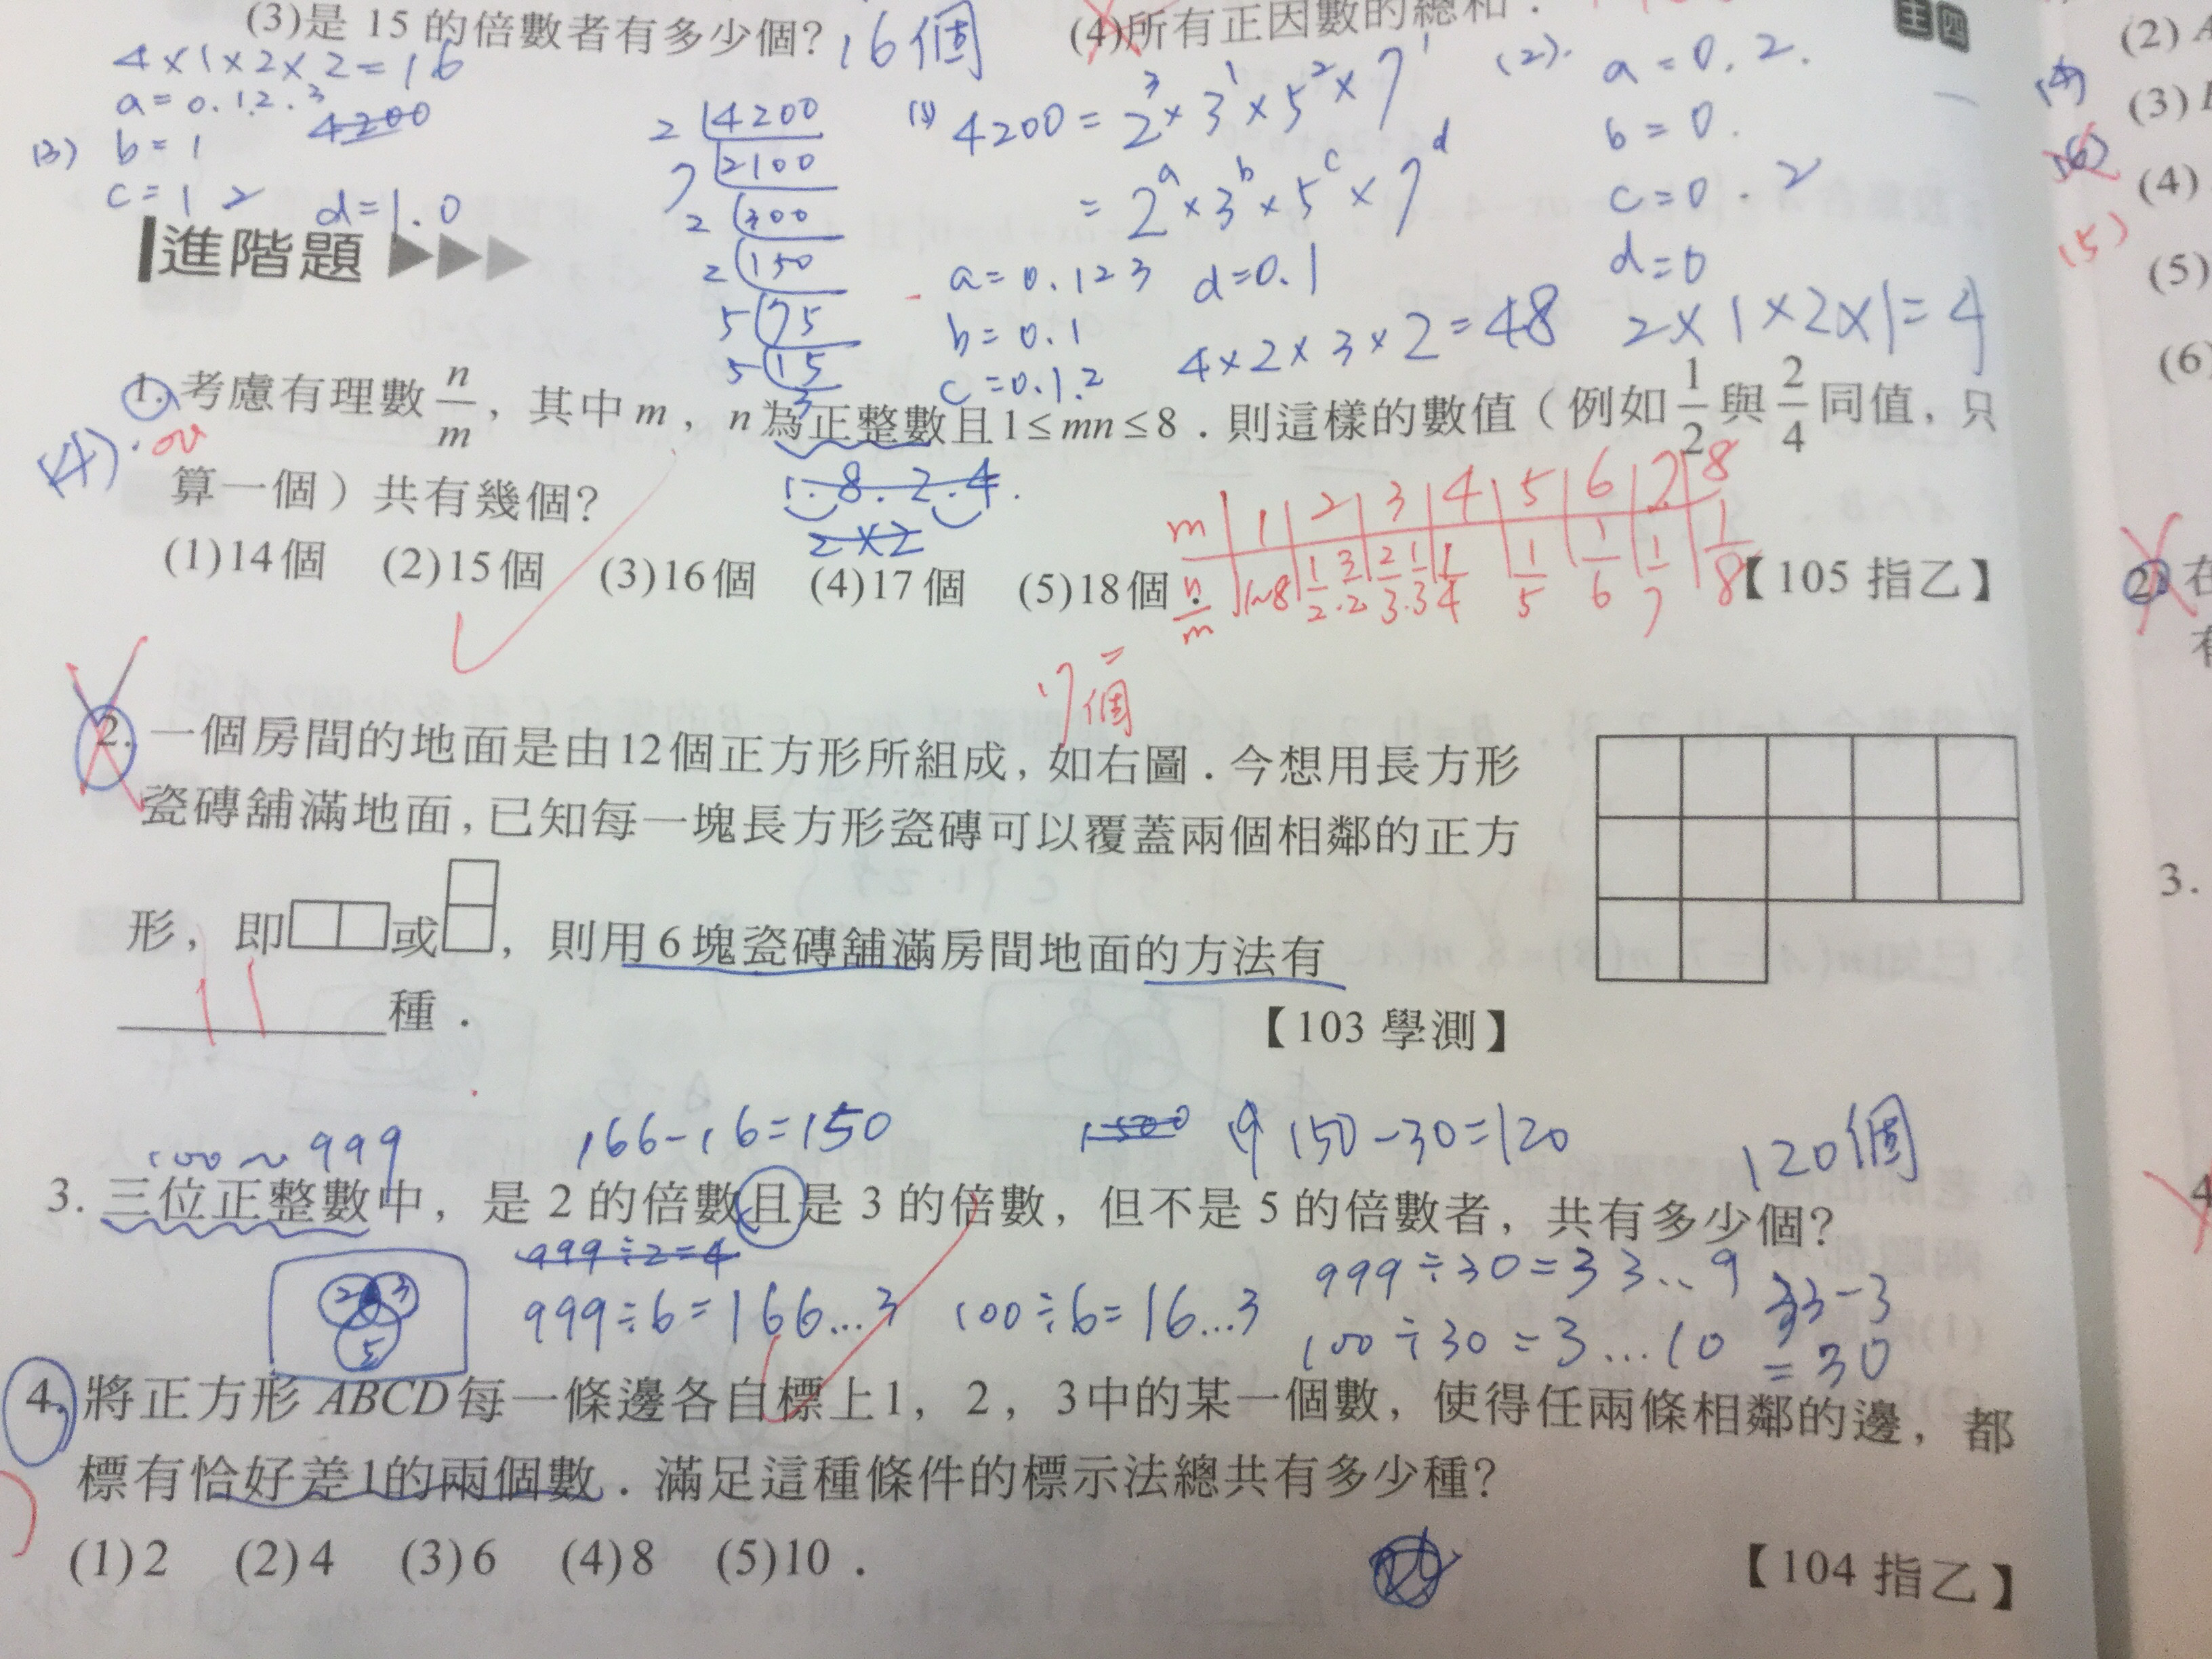 (3)是 15 的倍數者有多少個? 16個
(4)所有正因數的總和.
4×1×2×2=16
a=0.1.2.3
4200
(3) b=1
c=1 2 d=1.0
2 4200
2100
2 300
2 150
5 75
5 15
3
(1) 4200=2³×3¹×5²×7¹
=2ᵃ×3ᵇ×5ᶜ×7ᵈ
a=0.123 d=0.1
b=0.1
c=0.1.2
4×2×3×2=48
(2). a=0.2.
b=0.
c=0.2
d=0
2×1×2×1=4
進階題
1. 考慮有理數n/m, 其中m, n為正整數且1≤mn≤8. 則這樣的數值(例如1/2與2/4同值, 只
(4).
算一個)共有幾個?
1.8.2.4.
2×2
(1)14個 (2)15個 (3)16個 (4)17個 (5)18個. 【105 指乙】
m 1 2 3 4 5 6 7 8
n/m 1~8 1/2.3/2 2/3.1/3 1/4 1/5 1/6 1/7 1/8
=
17個
2. 一個房間的地面是由12個正方形所組成, 如右圖. 今想用長方形
瓷磚舖滿地面, 已知每一塊長方形瓷磚可以覆蓋兩個相鄰的正方
形, 即或, 則用 6 塊瓷磚舖滿房間地面的方法有
11種.
【103 學測】
100~999 166-16=150 150-30=120 120個
3. 三位正整數中, 是 2 的倍數且是 3 的倍數, 但不是 5 的倍數者, 共有多少個?
2 3
5
999÷2=4
999÷6=166...3 100÷6=16...3
999÷30=33...9
100÷30=3...10
33-3
=30
4. 將正方形 ABCD每一條邊各自標上1, 2, 3中的某一個數, 使得任兩條相鄰的邊, 都
標有恰好差1的兩個數. 滿足這種條件的標示法總共有多少種?
(1)2 (2)4 (3)6 (4)8 (5)10.
【104 指乙】
(2)
(3)
(4)
(5)
(5)
(6)
2. 在
有
3.
4